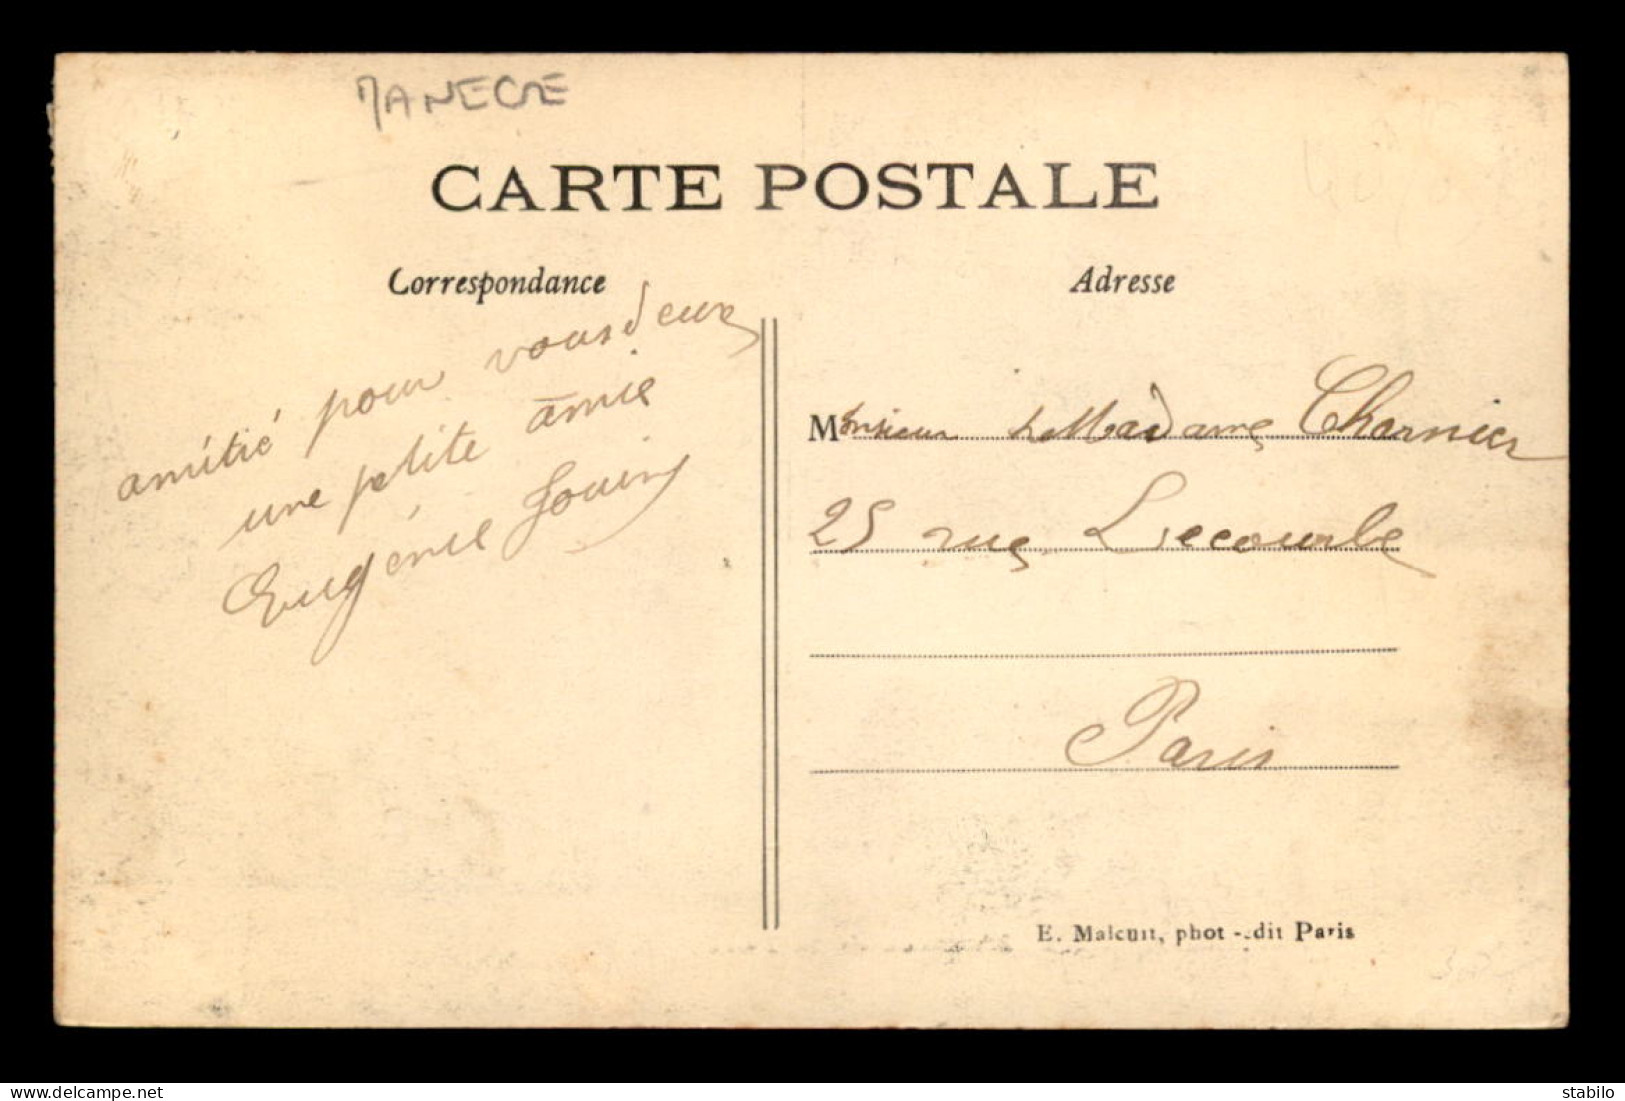 MANEGE
CARTE POSTALE
Correspondance
Adresse
amitié pour vous deux
une petite amie
Eugénie
Monsieur & Madame Charnier
25 rue Lecourbe
Paris
E. Malcuit, phot -edit Paris
stabilo